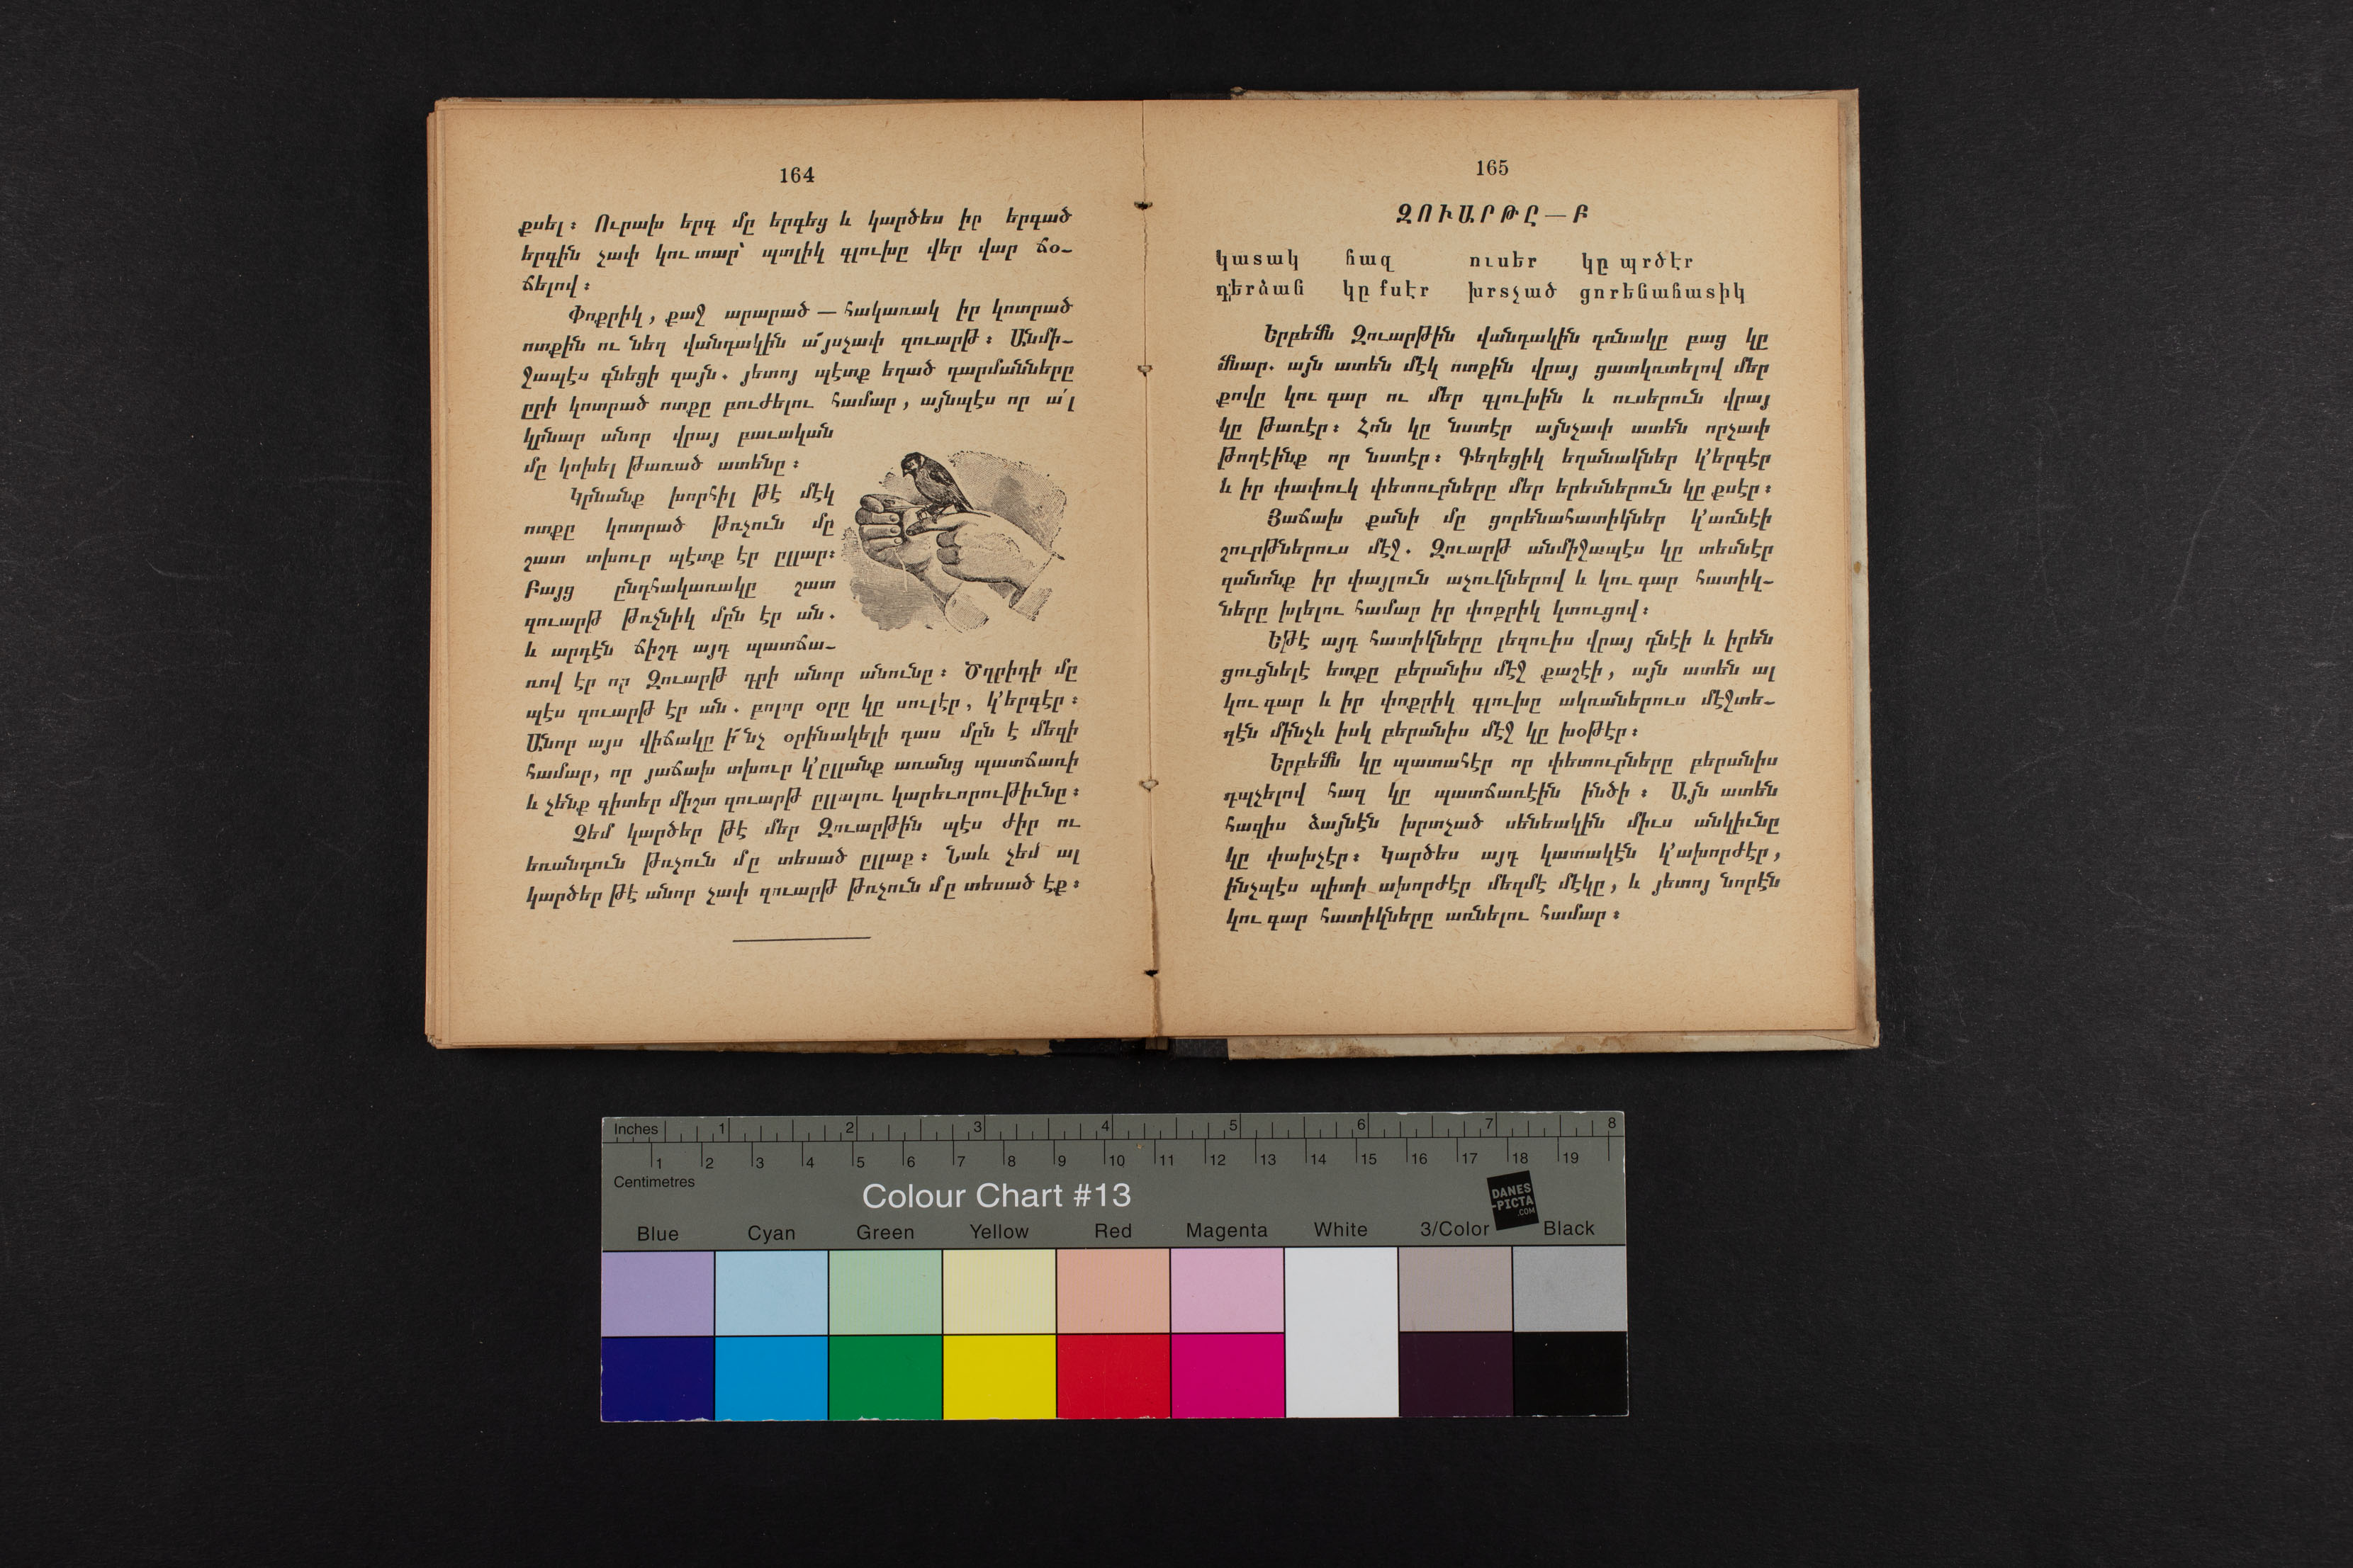 164
քսել։ Ուրախ երգ մը երգեց և կարծես իր երգած
երգին չափ կու տար՝ պտլիկ գլուխը վեր վար ճօ-
ճելով։
Փոքրիկ, քաջ արարած — հակառակ իր կոտրած
ոտքին ու նեղ վանդակին ա՜յսչափ զուարթ։ Անմի-
ջապէս գնեցի զայն. յետոյ պէտք եղած դարմանները
ըրի կոտրած ոտքը բուժելու համար, այնպէս որ ա՛լ
կրնար անոր վրայ բաւական
մը կոխել թառած ատենը։
Կրնանք խորհիլ թէ մէկ
ոտքը կոտրած թռչուն մը
շատ տխուր պէտք էր ըլլար։
Բայց ընդհակառակը շատ
զուարթ թռչնիկ մըն էր ան.
և արդէն ճիշդ այդ պատճա-
ռով էր որ Զուարթ դրի անոր անունը։ Ծղրիդի մը
պէս զուարթ էր ան. բոլոր օրը կը սուլէր, կ'երգէր։
Անոր այս վիճակը ի՜նչ օրինակելի դաս մըն է մեզի
համար, որ յաճախ տխուր կ'ըլլանք առանց պատճառի
և չենք գիտեր միշտ զուարթ ըլլալու կարեւորութիւնը։
Չեմ կարծեր թէ մեր Զուարթին պէս ժիր ու
եռանդուն թռչուն մը տեսած ըլլաք։ Նաև չեմ ալ
կարծեր թէ անոր չափ զուարթ թռչուն մը տեսած էք։
165
ԶՈՒԱՐԹԸ — Բ
կատակ հազ ուսեր կը պրծէր
դերձան կը քսէր խրտչած ցորենահատիկ
Երբեմն Զուարթին վանդակին դռնակը բաց կը
մնար. այն ատեն մէկ ոտքին վրայ ցատկռտելով մեր
քովը կու գար ու մեր գլուխին և ուսերուն վրայ
կը թառէր։ Հոն կը նստէր այնչափ ատեն որչափ
թողէինք որ նստէր։ Գեղեցիկ եղանակներ կ'երգէր
և իր փափուկ փետուրները մեր երեսներուն կը քսէր։
Յաճախ քանի մը ցորենահատիկներ կ'առնէի
շուրթներուս մէջ. Զուարթ անմիջապէս կը տեսնէր
զանոնք իր փայլուն աչուկներով և կու գար հատիկ-
ները խլելու համար իր փոքրիկ կտուցով։
Եթէ այդ հատիկները լեզուիս վրայ դնէի և իրեն
ցուցնելէ ետքը բերանիս մէջ քաշէի, այն ատեն ալ
կու գար և իր փոքրիկ գլուխը ակռաներուս մէջտե-
ղէն մինչև իսկ բերանիս մէջ կը խօթէր։
Երբեմն կը պատահէր որ փետուրները բերանիս
դպչելով հազ կը պատճառէին ինծի։ Այն ատեն
հազիս ձայնէն խրտչած սենեակին միւս անկիւնը
կը փախչէր։ Կարծես այդ կատակէն կ'ախորժէր,
ինչպէս պիտի ախորժէր մեզմէ մէկը, և յետոյ նորէն
կու գար հատիկները առնելու համար։
Inches 1 2 3 4 5 6 7 8
1 2 3 4 5 6 7 8 9 10 11 12 13 14 15 16 17 18 19
Centimetres
Colour Chart #13
DANES
-PICTA
.COM
Blue Cyan Green Yellow Red Magenta White 3/Color Black